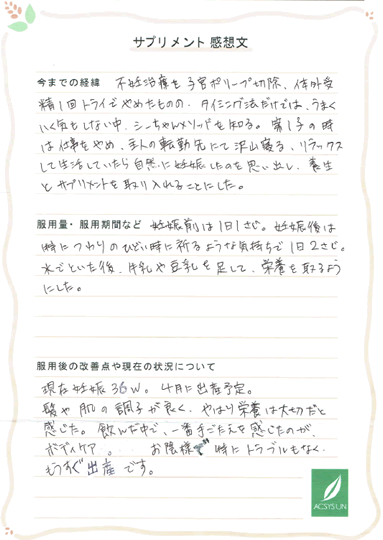 サプリメント 感想文
今までの経緯 不妊治療を子宮ポリープ切除、体外受
精1回トライでやめたものの、タイミング法だけでは、うまく
いく気もしない中、シーちゃんメソッドを知る。第1子の時
は仕事をやめ、主人の転勤先にて沢山寝る、リラックス
して生活していたら自然に妊娠したのを思い出し、養生
とサプリメントを取り入れることにした。
服用量・服用期間など 妊娠前は1日1さじ。妊娠後は
特につわりのひどい時に祈るような気持ちで1日2さじ。
水でといた後、牛乳や豆乳を足して、栄養を取るよう
にした。
服用後の改善点や現在の状況について
現在妊娠36w。4月に出産予定。
髪や肌の調子が良く、やはり栄養は大切だと
感じた。飲んだ中で、一番手ごたえを感じたのが、
ボディケア。 お陰様で 特にトラブルもなく、
もうすぐ出産です。
ACSYSUN